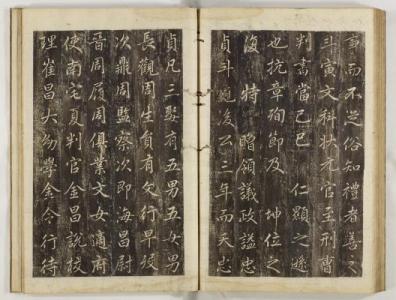 事而不是俗知禮者善之
斗寅文科狀元官至刑曹
判書當己巳 仁顯之遜
也抗章殉節及 坤位之
復 特 贈領議政諡忠
貞斗 後公三年而天忠
貞凡三娶有五男五女男
長觀周生負有欠行早歿
次鼎周監察次即海昌尉
晉周履周俱業文女適府
使南宅夏判官金昌說校
理崔昌大幼學金令行待